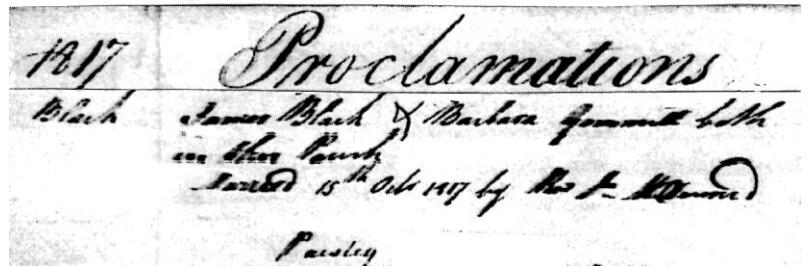 1817 Proclamations
Black James Black & Barbara both
in this Parish
Married 15th Octr 1817 by
Paisley